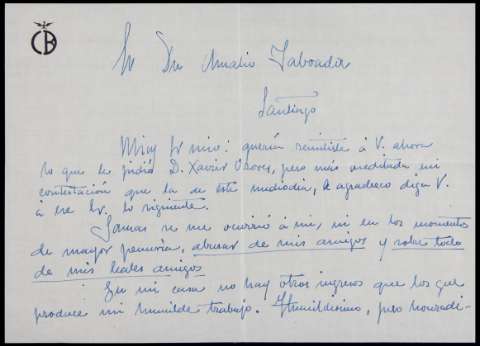 CB
Sr Dn Amalio Taboada
Santiago
Muy Sr mio: quería remitirle á V. ahora
lo que le pidió D. Xavier Ozores, pero más meditada mi
contestación que la de este mediodia, le agradezco diga V.
á ese Sr. lo siguiente.
Jamas se me ocurrió á mi, ni en los momentos
de mayor penuria, abusar de mis amigos y sobre todo
de mis leales amigos
En mi casa no hay otros ingresos que los que
produce mi humilde trabajo. Humildisimo, pero honradi-